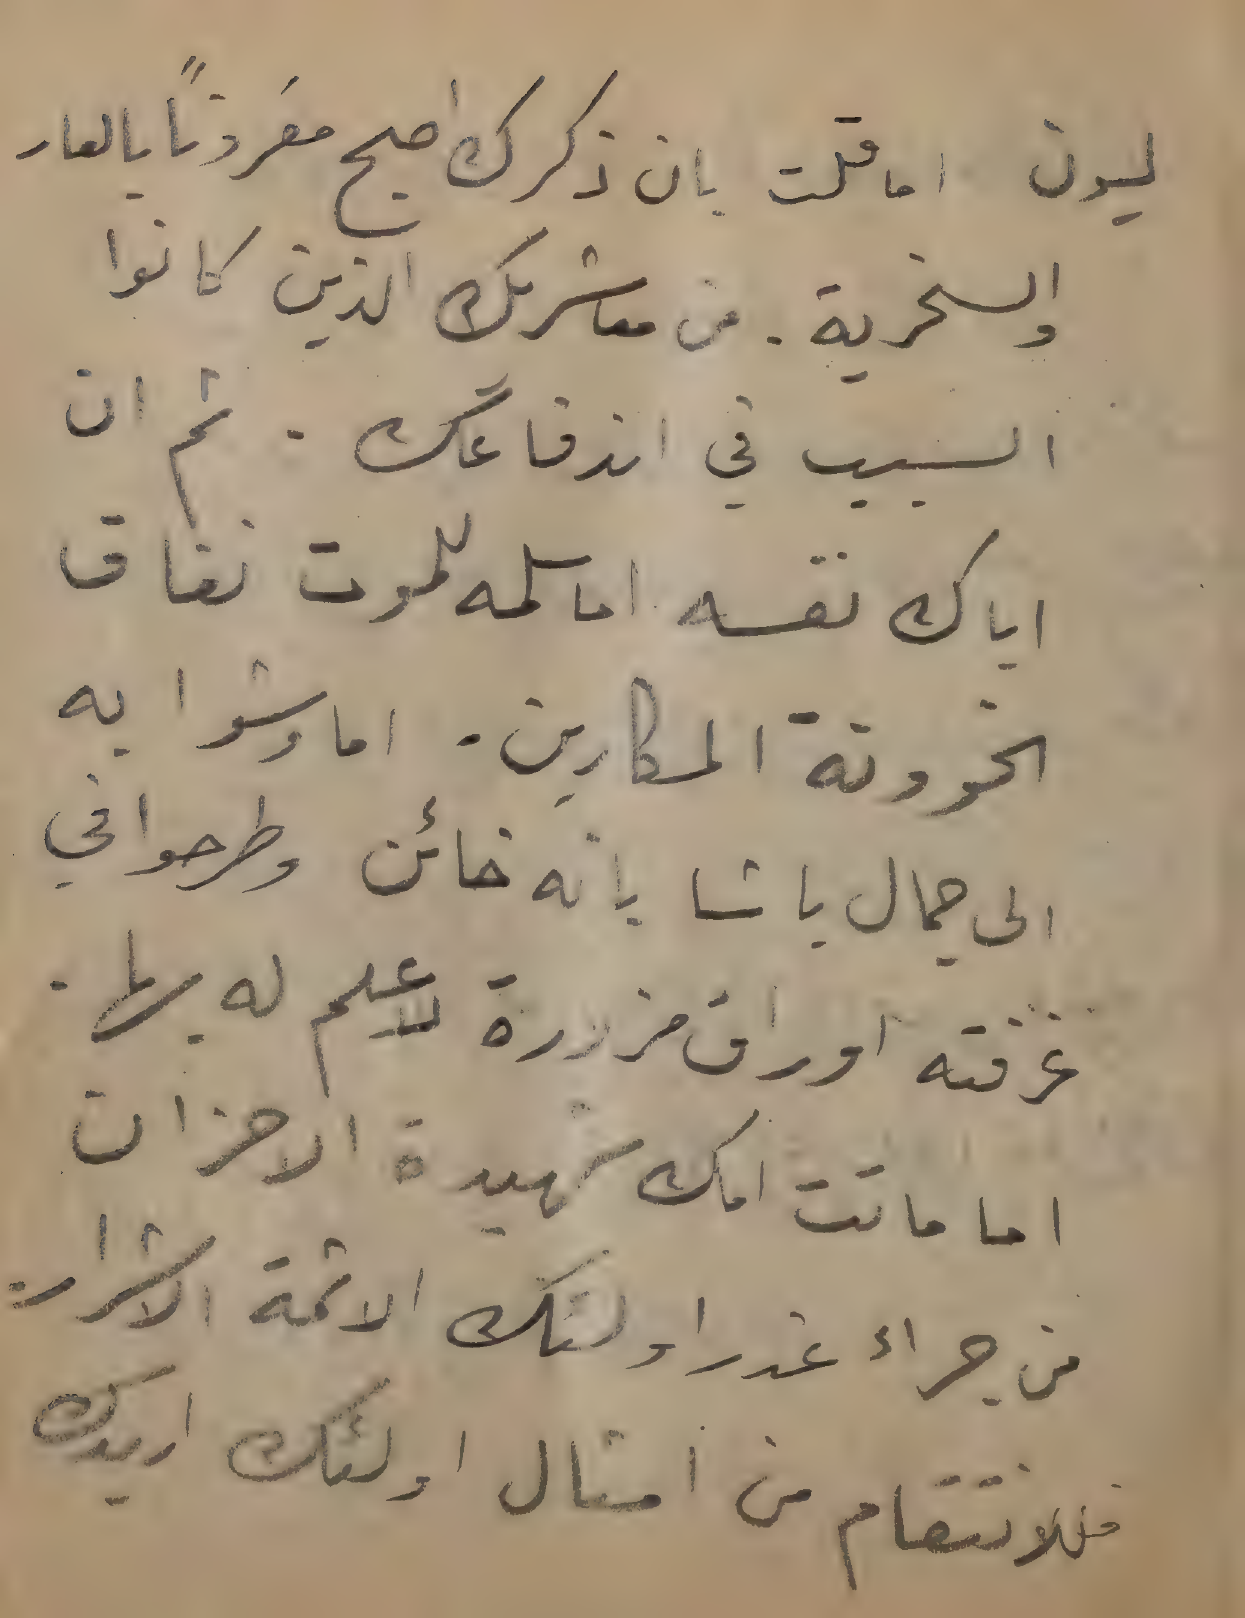 ليون اما قلت بان ذكرك اصبح مقروناً بالعار
والسخرية . من معاشريك الذين كانوا
السبب في اندفاعك . ثم ان
اباك نفسه اما سلمه للموت نفاق
الخوونة المكارين . اما وشوا به
الى جمال باشا بانه خائن وطرحوا في
غرفته اوراق مزورة لا علم له بها .
اما ماتت امك شهيدة الاحزان
من جراء غدر اولئك الاثمة الاشرار .
فللانتقام من امثال اولئك اريدك